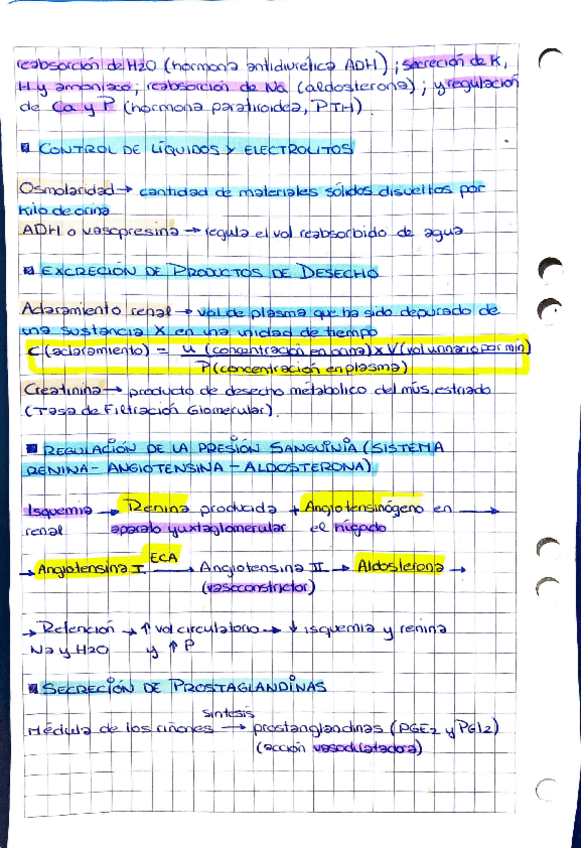 reabsorción de H2O (hormona antidiurética ADH); secreción de K,
H y amoniaco; reabsorción de Na (aldosterona); y regulación
de Ca y P (hormona paratiroidea, PTH).
CONTROL DE LÍQUIDOS Y ELECTROLITOS
Osmolaridad → cantidad de materiales sólidos disueltos por
kilo de orina
ADH o vasopresina → regula el vol reabsorbido de agua
EXCRECIÓN DE PRODUCTOS DE DESECHO
Aclaramiento renal → vol de plasma que ha sido depurado de
una sustancia X en una unidad de tiempo
C (aclaramiento) = U (concentración en orina) x V (vol urinario por min)
P (concentración en plasma)
Creatinina → producto de desecho metabólico del mús. estriado
(Tasa de Filtración Glomerular).
REGULACIÓN DE LA PRESIÓN SANGUINIA (SISTEMA
RENINA - ANGIOTENSINA - ALDOSTERONA)
Isquemia → Renina producida + Angiotensinógeno en →
renal aparato yuxtaglomerular el hígado
ECA
→ Angiotensina I → Angiotensina II → Aldosterona →
(vasoconstrictor)
→ Retención → ↑ vol circulatorio → ↓ isquemia y renina
Na y H2O y ↑ P
SECRECIÓN DE PROSTAGLANDINAS
síntesis
Médula de los riñones → prostanglandinas (PGE2 y PGI2)
(acción vasodilatadora)